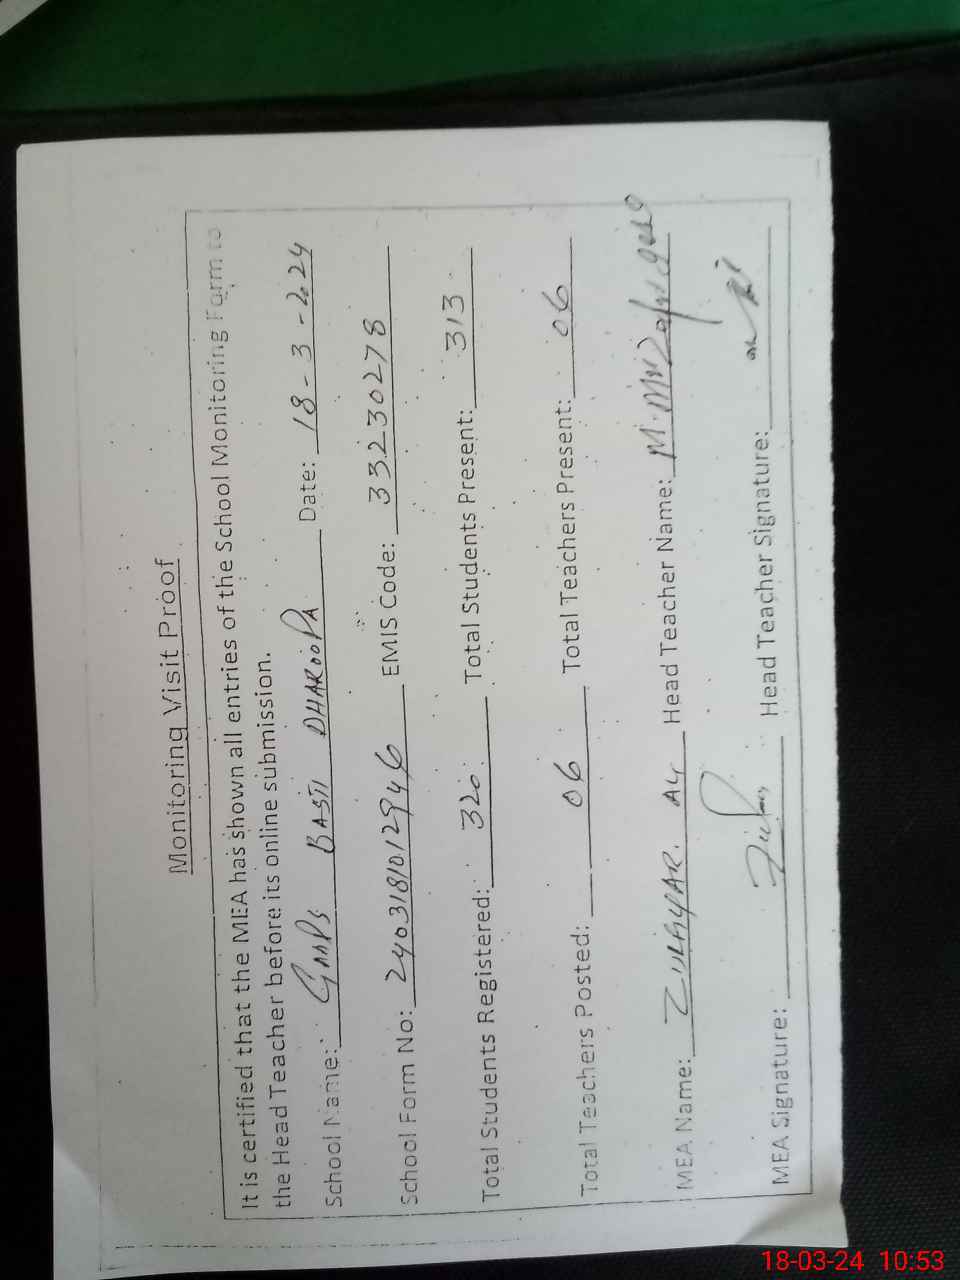 Monitoring Visit Proof
It is certified that the MEA has shown all entries of the School Monitoring Form to
the Head Teacher before its online submission.
School Name: BASTI DHAROOPA Date: 18-3-2024
School Form No: EMIS Code: 33230278
Total Students Registered: 320 Total Students Present: 313
Total Teachers Posted: 06 Total Teachers Present: 06
MEA Name: Head Teacher Name:
MEA Signature: Head Teacher Signature:
18-03-24 10:53